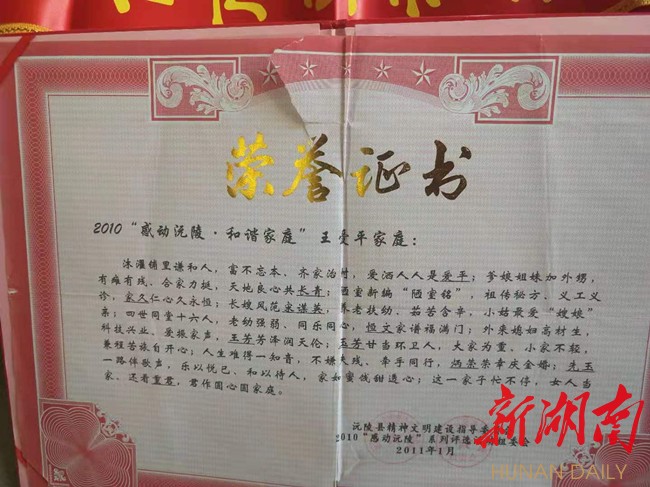 荣誉证书
2010“感动沅陵·和谐家庭”王爱平家庭：
洙濯铺里谦和人，富不忘本、齐家治村，爱洒人人是爱平；爹娘姐妹加外甥，
有难有残、合家力挺，天地良心共长青；陋室新编“陋室铭”，祖传秘方、义工义
诊，家久仁心久永恒；长嫂风范宋谋英，养老扶幼、茹苦含辛，小姑最爱“嫂娘”
亲；四世同堂十六人，老幼强弱、同乐同心，恒文家谱福满门；外来媳妇高材生，
科技兴业、爱振家声，王芳芳泽润天伦；玉芳甘当环卫人，大家为重、小家不轻，
兼程苦旅自开心；人生难得一知音，不嫌 残、牵手同行，炳荣荣幸庆金婚；先玉
一路伴歌声，乐以悦己、和以待人，家如蜜饯甜透心；这一家子忙不停，女人当
家、还看重君，君作圆心圆家庭。
沅陵县精神文明建设指导委
2010“感动沅陵”系列评选 组委会
2011年1月
新湖南
HUNAN DAILY